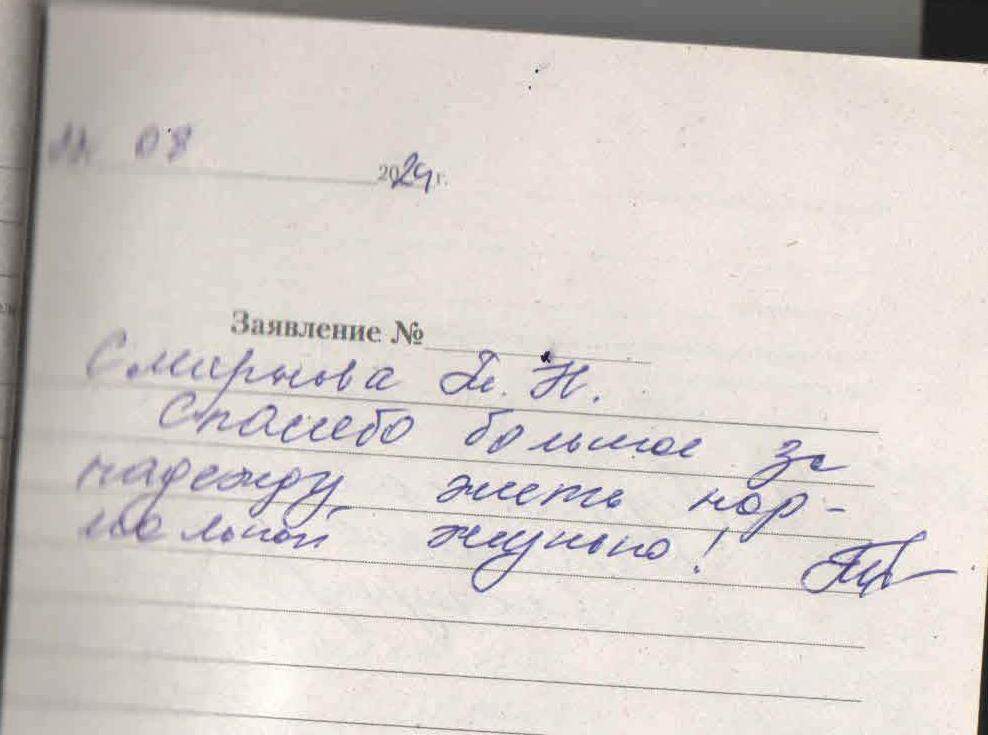 08 2024 г.
Заявление №
Смирнова Т. Н.
Спасибо большое за
надежду жить нор-
мальной жизнью!